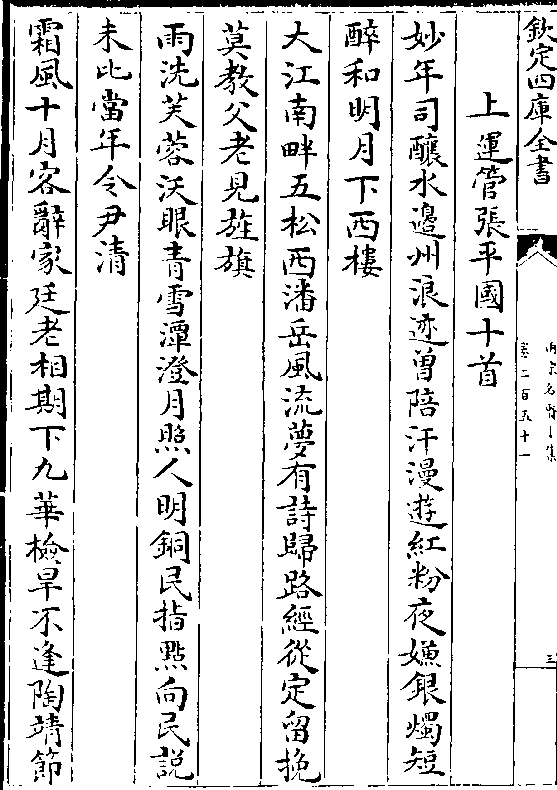 欽定四庫全書
卷二百五十一
三
上運管張平國十首
妙年司釀水邊州浪迹曽陪汗漫遊紅粉夜嫌銀燭短
醉和明月下西樓
大江南畔五松西潘岳風流夢有詩歸路經從定留挽
莫教父老見旌旗
雨洗芙蓉沃眼青雪潭澄月照人明銅民指點向民說
未比當年令尹清
霜風十月客辭家廷老相期下九華檢旱不逢陶靖節